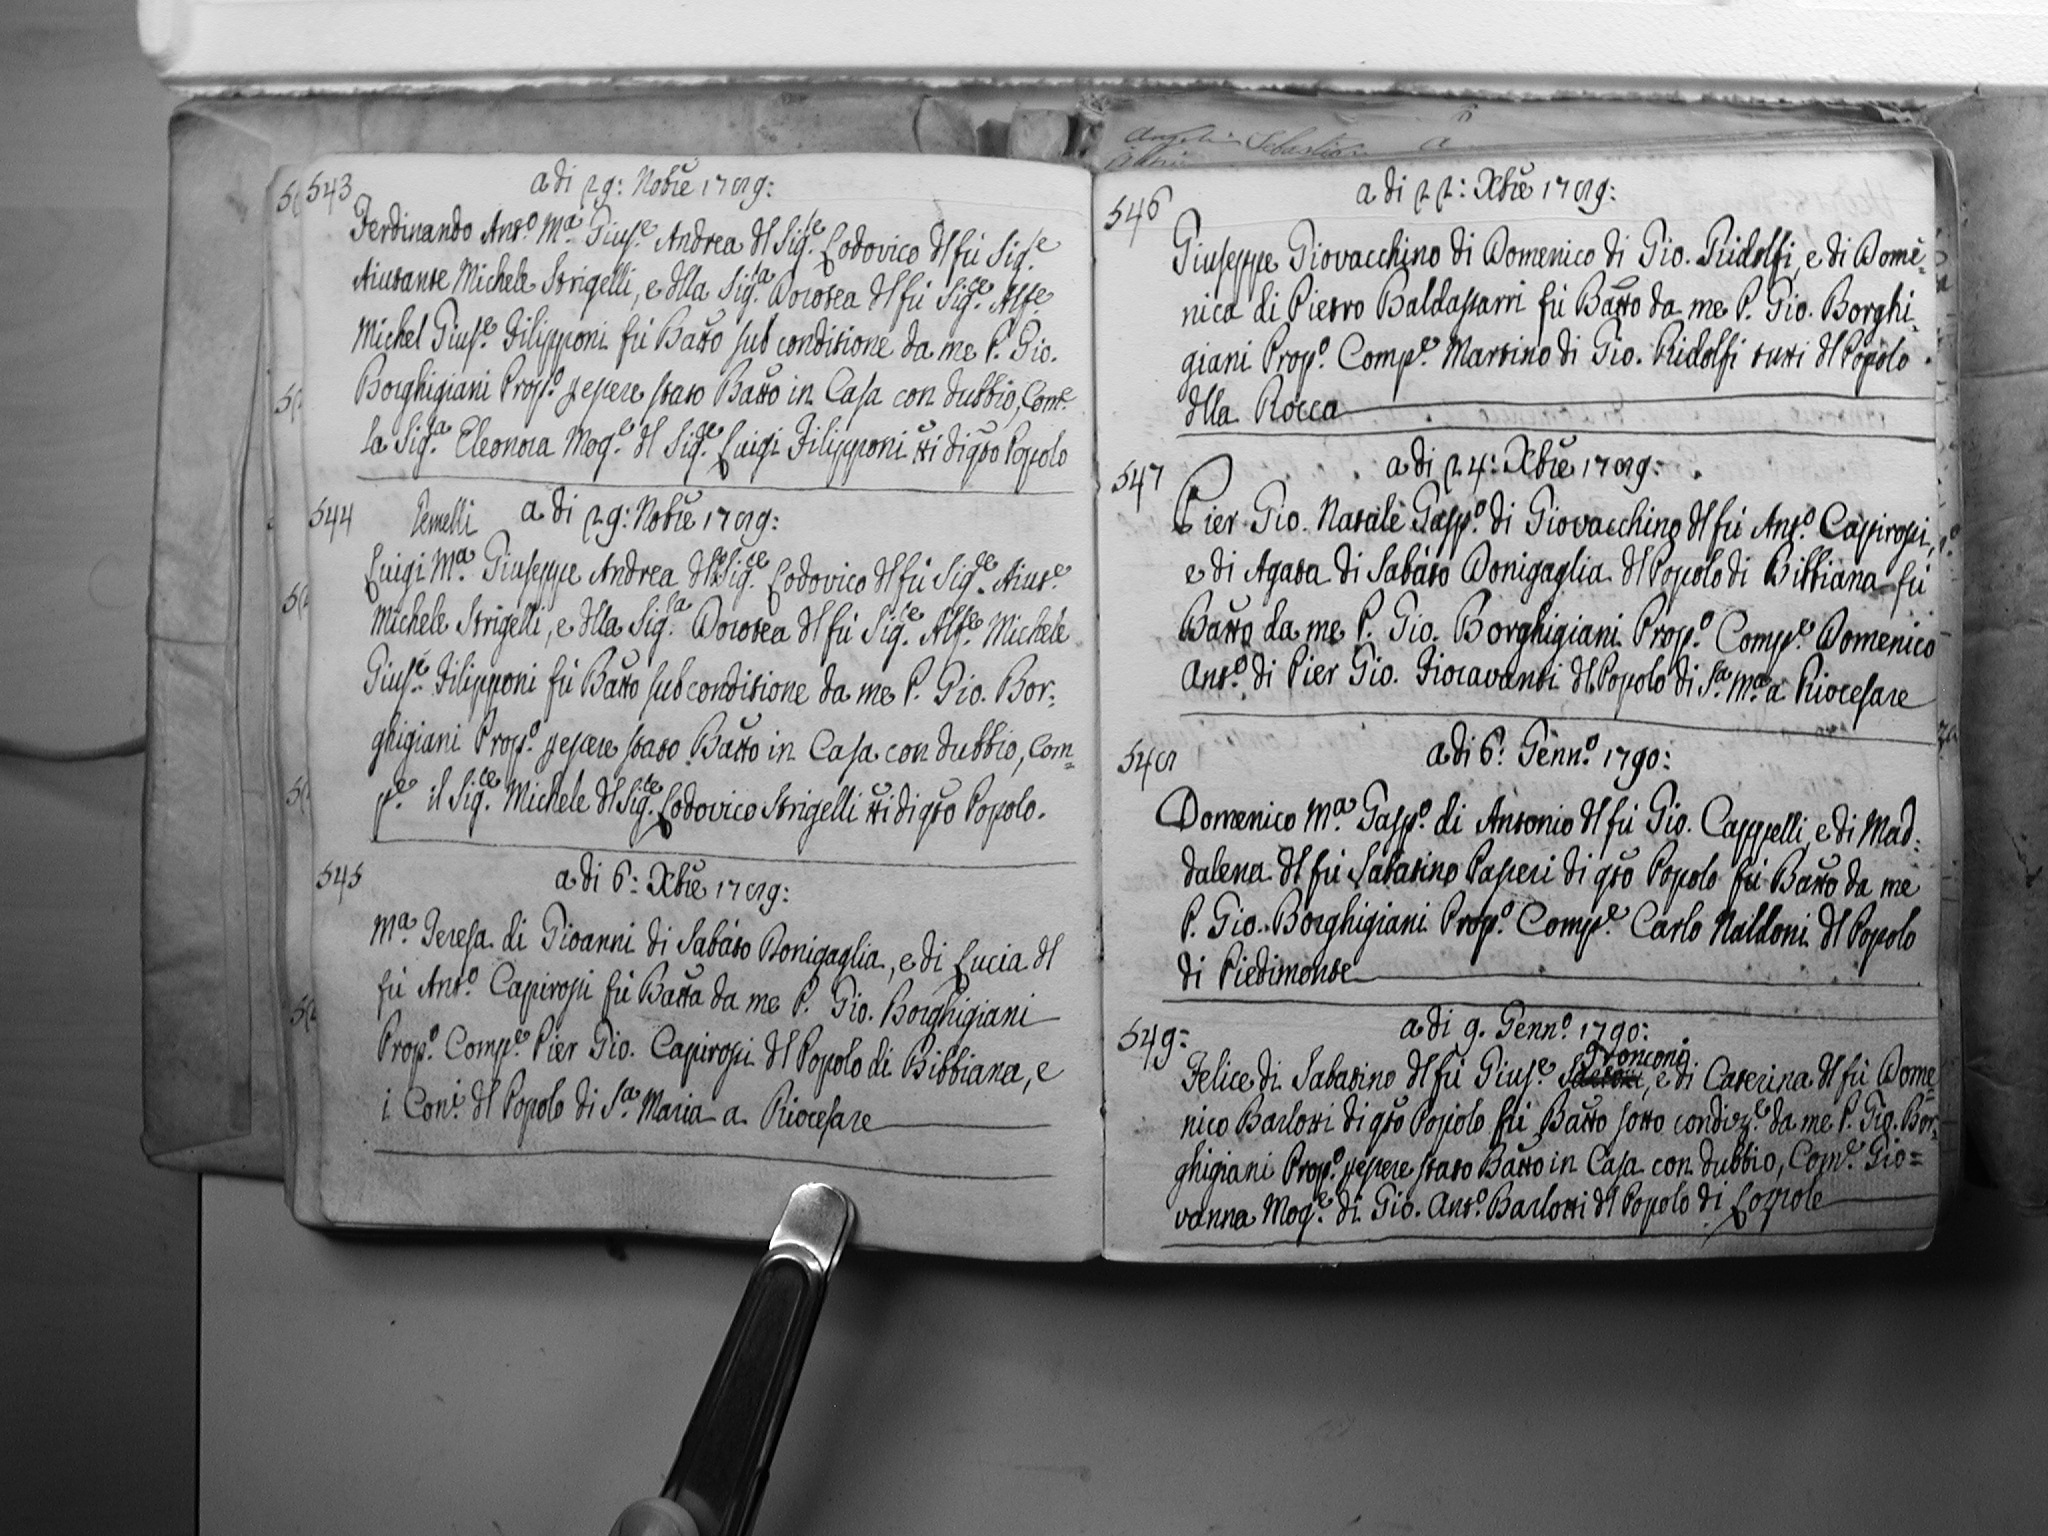 543
a di 29: Nobre 1789:
Ferdinando Anto. Ma. Giuse. Andrea dl Sige. Lodovico dl fù Sige.
Aiutante Michele Strigelli, e dlla Siga. Dorotea dl fù Sige. Alfe.
Michel Giuse. Filipponi fù Batto sub conditione da me P. Gio.
Borghigiani Propo. p essere stato Batto in Casa con dubbio, Come.
la Siga. Eleonora Moge. dl Sige. Luigi Filipponi tti di qto Popolo
544
Gemelli
a di 29: Nobre 1789:
Luigi Ma. Giuseppe Andrea dl Sige. Lodovico dl fù Sige. Aiute.
Michele Strigelli, e dlla Siga. Dorotea dl fù Sige. Alfe. Michele
Giuse. Filipponi fù Batto sub conditione da me P. Gio. Bor:
ghigiani Propo. p essere stato Batto in Casa con dubbio, Com=
pe. il Sige. Michele dl Sige. Lodovico Strigelli tti di qto Popolo.
545
a di 6: Xbre 1789:
Ma. Teresa di Gioanni di Sabato Bonigaglia, e di Lucia dl
fù Anto. Capirossi fù Batta da me P. Gio. Borghigiani
Propo. Compe. Pier Gio. Capirossi dl Popolo di Bibbiana, e
i Coni. dl Popolo di Sa. Maria a Riocesare
546
a di 22: Xbre 1789:
Giuseppe Giovacchino di Domenico di Gio. Ridolfi, e di Dome=
nica di Pietro Baldassarri fù Batto da me P. Gio. Borghi:
giani Propo. Compe. Martino di Gio. Ridolfi tutti dl Popolo
dlla Rocca
547
a di 24: Xbre 1789:
Pier Gio. Natale Gaspo. di Giovacchino dl fù Anto. Capirossi,
e di Agata di Sabato Bonigaglia dl Popolo di Bibbiana fù
Batto da me P. Gio. Borghigiani Propo. Compe. Domenico
Anto. di Pier Gio. Fioravanti dl Popolo di Sa. Ma. a Riocesare
548
a di 6: Genno. 1790:
Domenico Ma. Gaspo. di Antonio dl fù Gio. Cappelli, e di Mad:
dalena dl fù Sabatino Paperi di qto Popolo fù Batto da me
P. Gio. Borghigiani Propo. Compe. Carlo Naldoni dl Popolo
di Piedimonte
549=
a di 9. Genno. 1790:
Tronconi
Felice di Sabatino dl fù Giuse. , e di Caterina dl fù Dome=
nico Barlotti di qto Popolo fù Batto sotto condize. da me P. Gio. Bor:
ghigiani Propo. p essere stato Batto in Casa con dubbio, Come. Gio=
vanna Moge. di Gio. Anto. Barlotti dl Popolo di Lozzole